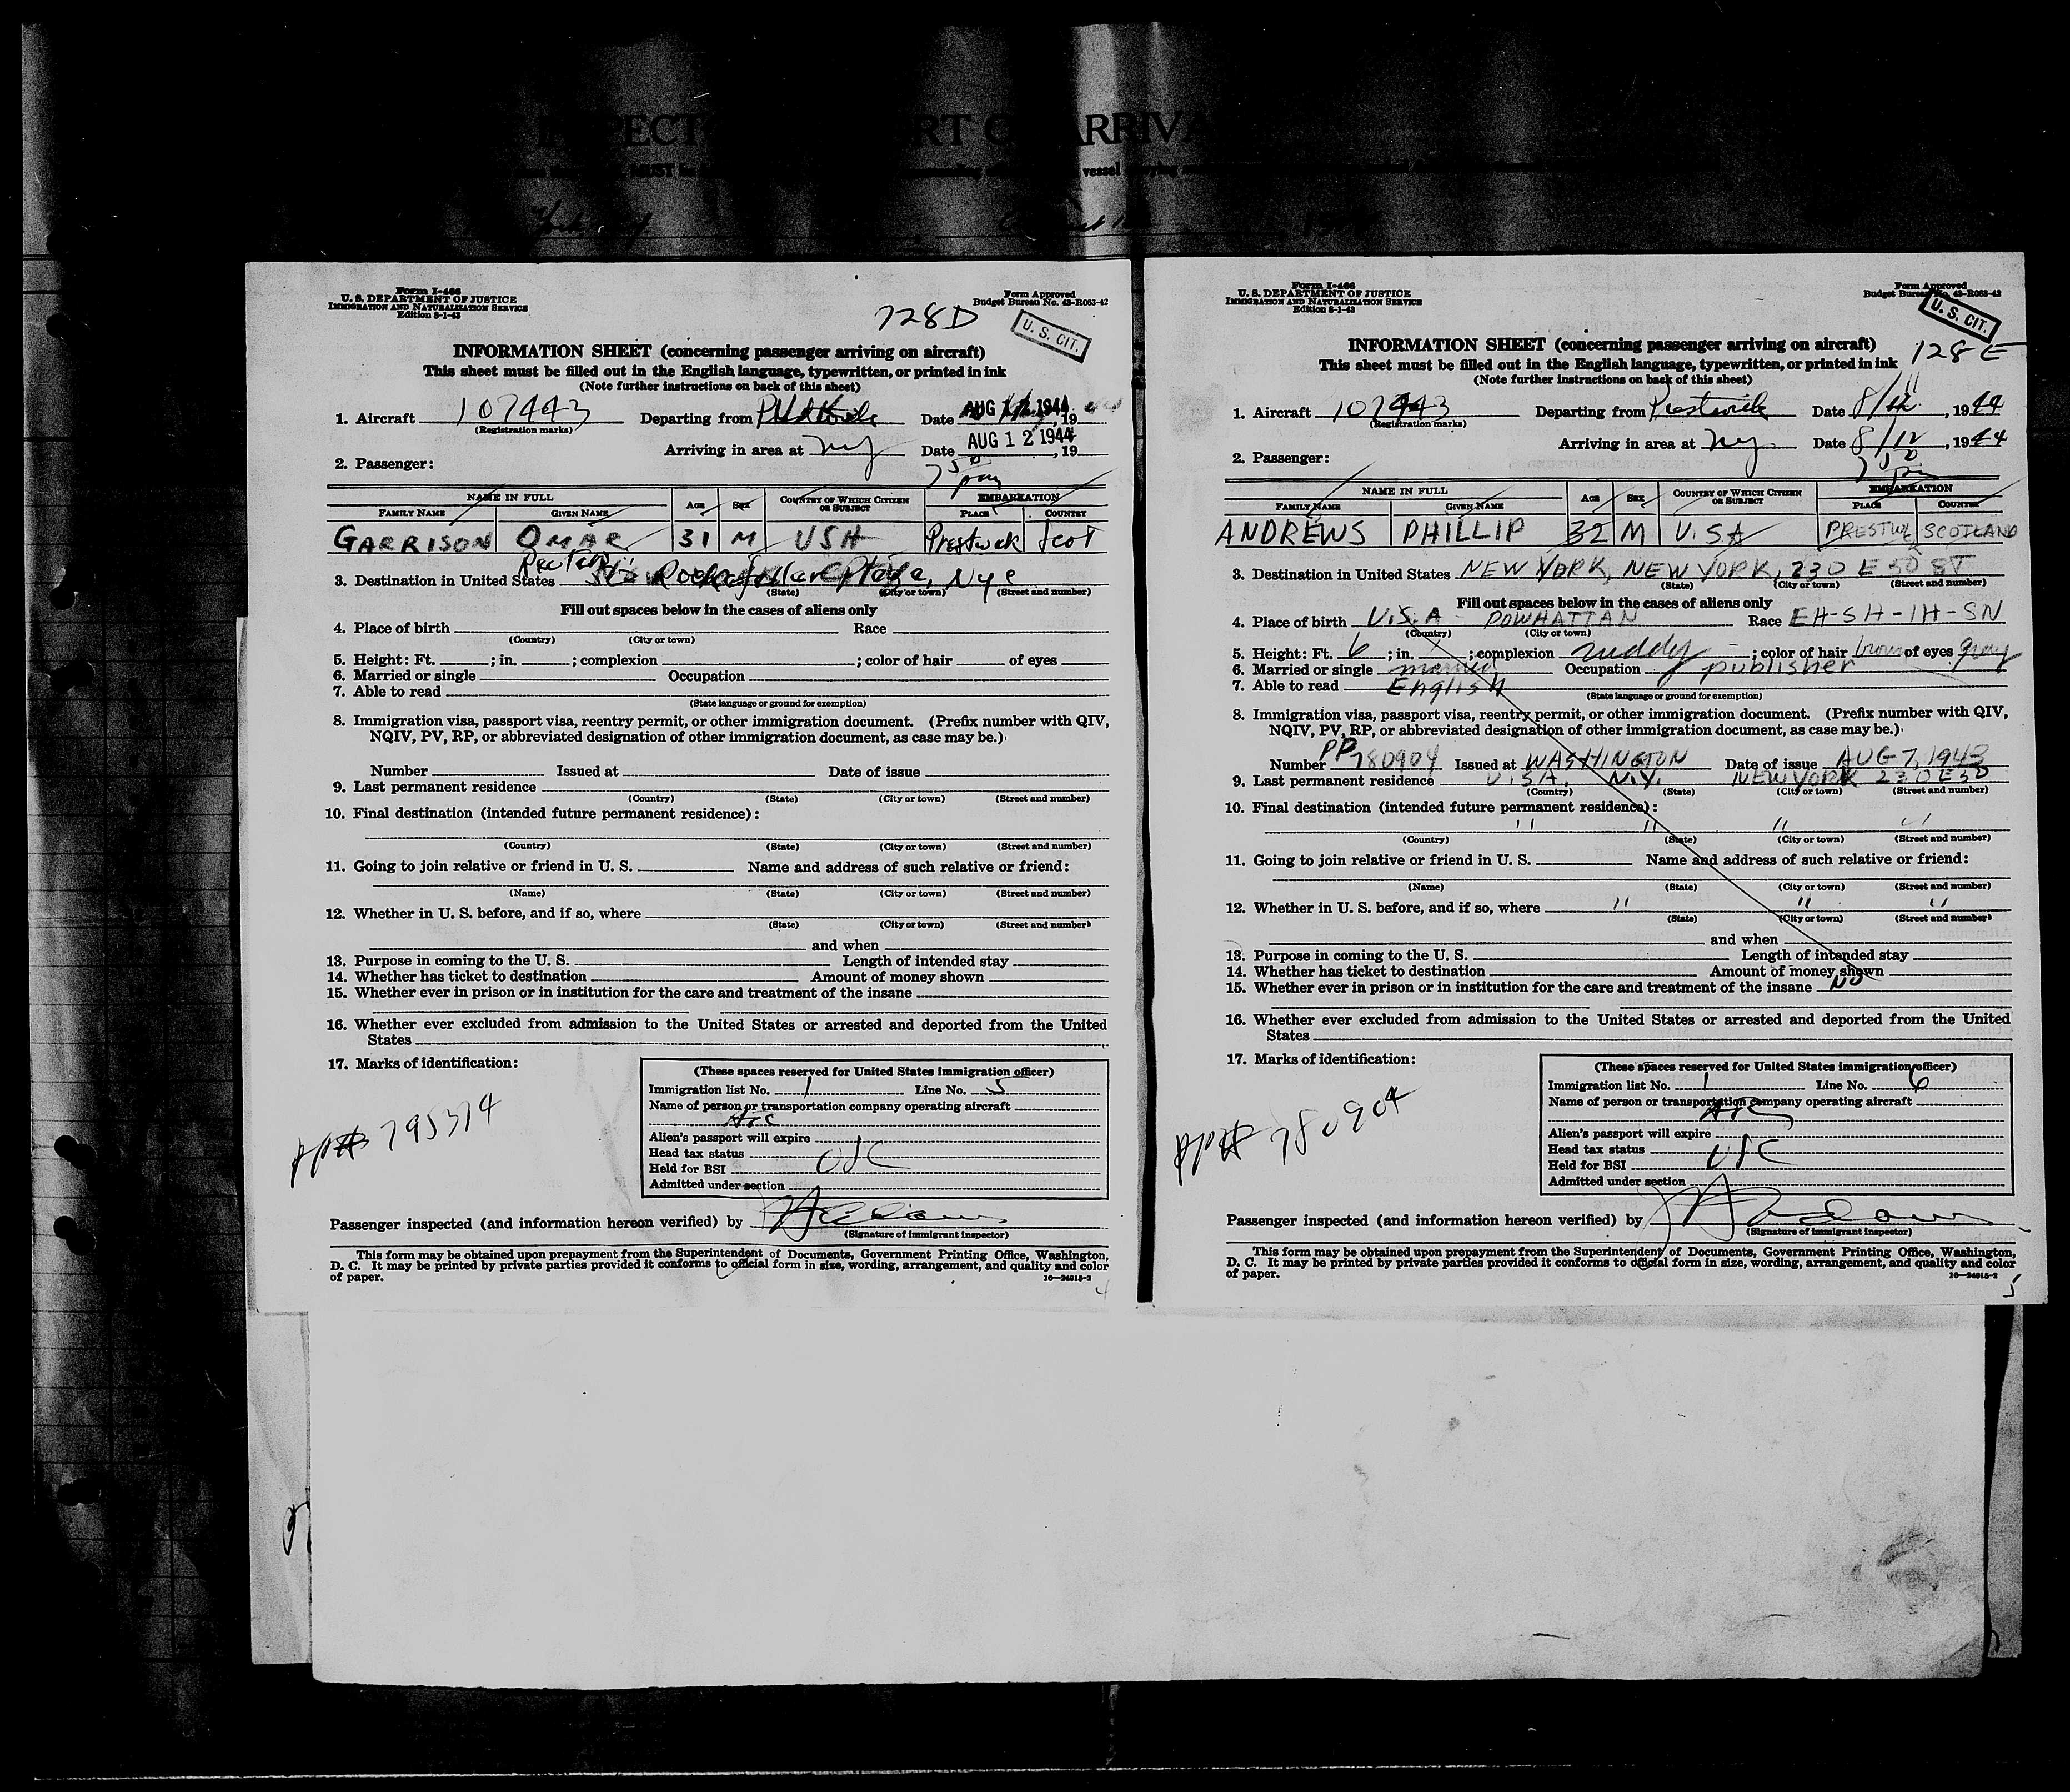 Form I-466
U. S. DEPARTMENT OF JUSTICE
IMMIGRATION AND NATURALIZATION SERVICE
Edition 8-1-43
Form Approved
Budget Bureau No. 43-R063-42
128D
U. S. CIT.
INFORMATION SHEET (concerning passenger arriving on aircraft)
This sheet must be filled out in the English language, typewritten, or printed in ink
(Note further instructions on back of this sheet)
1. Aircraft 107443 Departing from Date AUG 12 1944, 19
(Registration marks)
Arriving in area at ny Date AUG 12 1944, 19
2. Passenger: 7 50 pm
NAME IN FULL AGE SEX COUNTRY OF WHICH CITIZEN OR SUBJECT EMBARKATION
FAMILY NAME GIVEN NAME PLACE COUNTRY
GARRISON OMAR 31 M USA Prestwick Scot
3. Destination in United States Rockefeller Plaza, Nyc
(State) (City or town) (Street and number)
Fill out spaces below in the cases of aliens only
4. Place of birth Race
(Country) (City or town)
5. Height: Ft. ; in. ; complexion ; color of hair of eyes
6. Married or single Occupation
7. Able to read
(State language or ground for exemption)
8. Immigration visa, passport visa, reentry permit, or other immigration document. (Prefix number with QIV,
NQIV, PV, RP, or abbreviated designation of other immigration document, as case may be.)
Number Issued at Date of issue
9. Last permanent residence
(Country) (State) (City or town) (Street and number)
10. Final destination (intended future permanent residence):
(Country) (State) (City or town) (Street and number)
11. Going to join relative or friend in U. S. Name and address of such relative or friend:
(Name) (State) (City or town) (Street and number)
12. Whether in U. S. before, and if so, where
(State) (City or town) (Street and number)
and when
13. Purpose in coming to the U. S. Length of intended stay
14. Whether has ticket to destination Amount of money shown
15. Whether ever in prison or in institution for the care and treatment of the insane
16. Whether ever excluded from admission to the United States or arrested and deported from the United
States
17. Marks of identification:
PP# 795374
(These spaces reserved for United States immigration officer)
Immigration list No. 1 Line No. 5
Name of person or transportation company operating aircraft
Atc
Alien's passport will expire
Head tax status USC
Held for BSI
Admitted under section
Passenger inspected (and information hereon verified) by
(Signature of immigrant inspector)
This form may be obtained upon prepayment from the Superintendent of Documents, Government Printing Office, Washington,
D. C. It may be printed by private parties provided it conforms to official form in size, wording, arrangement, and quality and color
of paper. 16—34915-2
4
Form I-466
U. S. DEPARTMENT OF JUSTICE
IMMIGRATION AND NATURALIZATION SERVICE
Edition 8-1-43
Form Approved
Budget Bureau No. 43-R063-42
U. S. CIT.
128E
INFORMATION SHEET (concerning passenger arriving on aircraft)
This sheet must be filled out in the English language, typewritten, or printed in ink
(Note further instructions on back of this sheet)
1. Aircraft 107443 Departing from Prestwick Date 8/11, 1944
(Registration marks)
Arriving in area at ny Date 8/12, 1944
2. Passenger: 7 50 pm
NAME IN FULL AGE SEX COUNTRY OF WHICH CITIZEN OR SUBJECT EMBARKATION
FAMILY NAME GIVEN NAME PLACE COUNTRY
ANDREWS PHILLIP 32 M U.S.A SCOTLAND
3. Destination in United States NEW YORK, NEW YORK, 230 E 50 ST
(State) (City or town) (Street and number)
Fill out spaces below in the cases of aliens only
4. Place of birth U.S.A - POWHATTAN Race EH-SH-IH-SN
(Country) (City or town)
5. Height: Ft. 6 ; in. ; complexion ruddy ; color of hair brown of eyes gray
6. Married or single married Occupation publisher
7. Able to read English
(State language or ground for exemption)
8. Immigration visa, passport visa, reentry permit, or other immigration document. (Prefix number with QIV,
NQIV, PV, RP, or abbreviated designation of other immigration document, as case may be.)
Number PP 780904 Issued at WASHINGTON Date of issue AUG 7, 1943
9. Last permanent residence U.S.A. N.Y. NEW YORK 230 E 50
(Country) (State) (City or town) (Street and number)
10. Final destination (intended future permanent residence):
" " " "
(Country) (State) (City or town) (Street and number)
11. Going to join relative or friend in U. S. Name and address of such relative or friend:
(Name) (State) (City or town) (Street and number)
12. Whether in U. S. before, and if so, where " " "
(State) (City or town) (Street and number)
and when
13. Purpose in coming to the U. S. Length of intended stay
14. Whether has ticket to destination Amount of money shown
15. Whether ever in prison or in institution for the care and treatment of the insane NO
16. Whether ever excluded from admission to the United States or arrested and deported from the United
States
17. Marks of identification:
PP# 780904
(These spaces reserved for United States immigration officer)
Immigration list No. 1 Line No. 6
Name of person or transportation company operating aircraft
Atc
Alien's passport will expire
Head tax status USC
Held for BSI
Admitted under section
Passenger inspected (and information hereon verified) by
(Signature of immigrant inspector)
This form may be obtained upon prepayment from the Superintendent of Documents, Government Printing Office, Washington,
D. C. It may be printed by private parties provided it conforms to official form in size, wording, arrangement, and quality and color
of paper. 16—34915-2
5